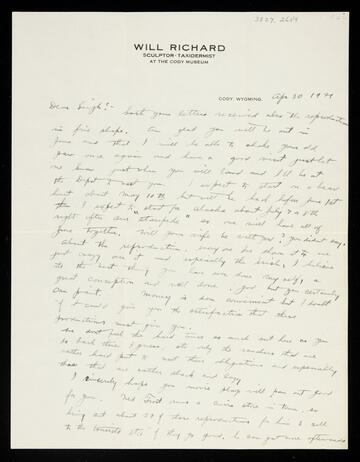 3827.2689
WILL RICHARD
SCULPTOR-TAXIDERMIST
AT THE CODY MUSEUM
CODY, WYOMING. Apr 30 1931
Dear Leigh:- both your letters received also the reproductions
in fine shape. Am glad you will be out in
June and that I will be able to shake your old
paw once again and have a good visit just let
me know just when you will land and I'll be at
the Depot to meet you. I expect to start on a bear
hunt about May 10th but will be back before June 1st
I expect to start for Alaska about July 7 or 8th
right after our "stampede" so we will have all of
June together. Will your wife be with you? you didn't say.
About the reproduction, every one I've shown it to are
just crazy over it and especially the brush, I believe
its the best thing you have ever done. My self, a
great conception and well done. God but you certainly
can paint. Money is damn convenient but I doubt
if it could give you the satisfaction that these
productions must give you.
We don't feel the hard times so much out here as you
do back there I guess, altho the ranchers that are
rather hard put to meet their obligations and especially
those that are rather slack and lazy
I sincerely hope your movie play will pan out good
for you. Ned Frost runs a curio store in town, so
bring out about 50 of those reproductions for him to sell
to the tourists etc. if they go good, he can get more afterwards